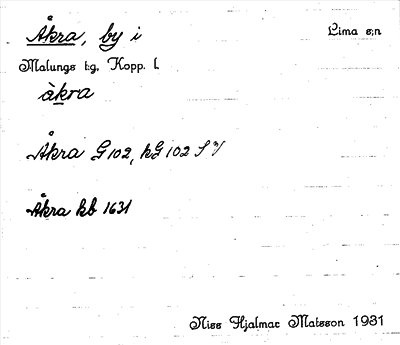 Åkra, by i Lima s:n
Malungs t:g, Kopp. l.
åkra
Åkra G 102, kG 102 S
Åkra kb 1631
Niss Hjalmar Matsson 1931